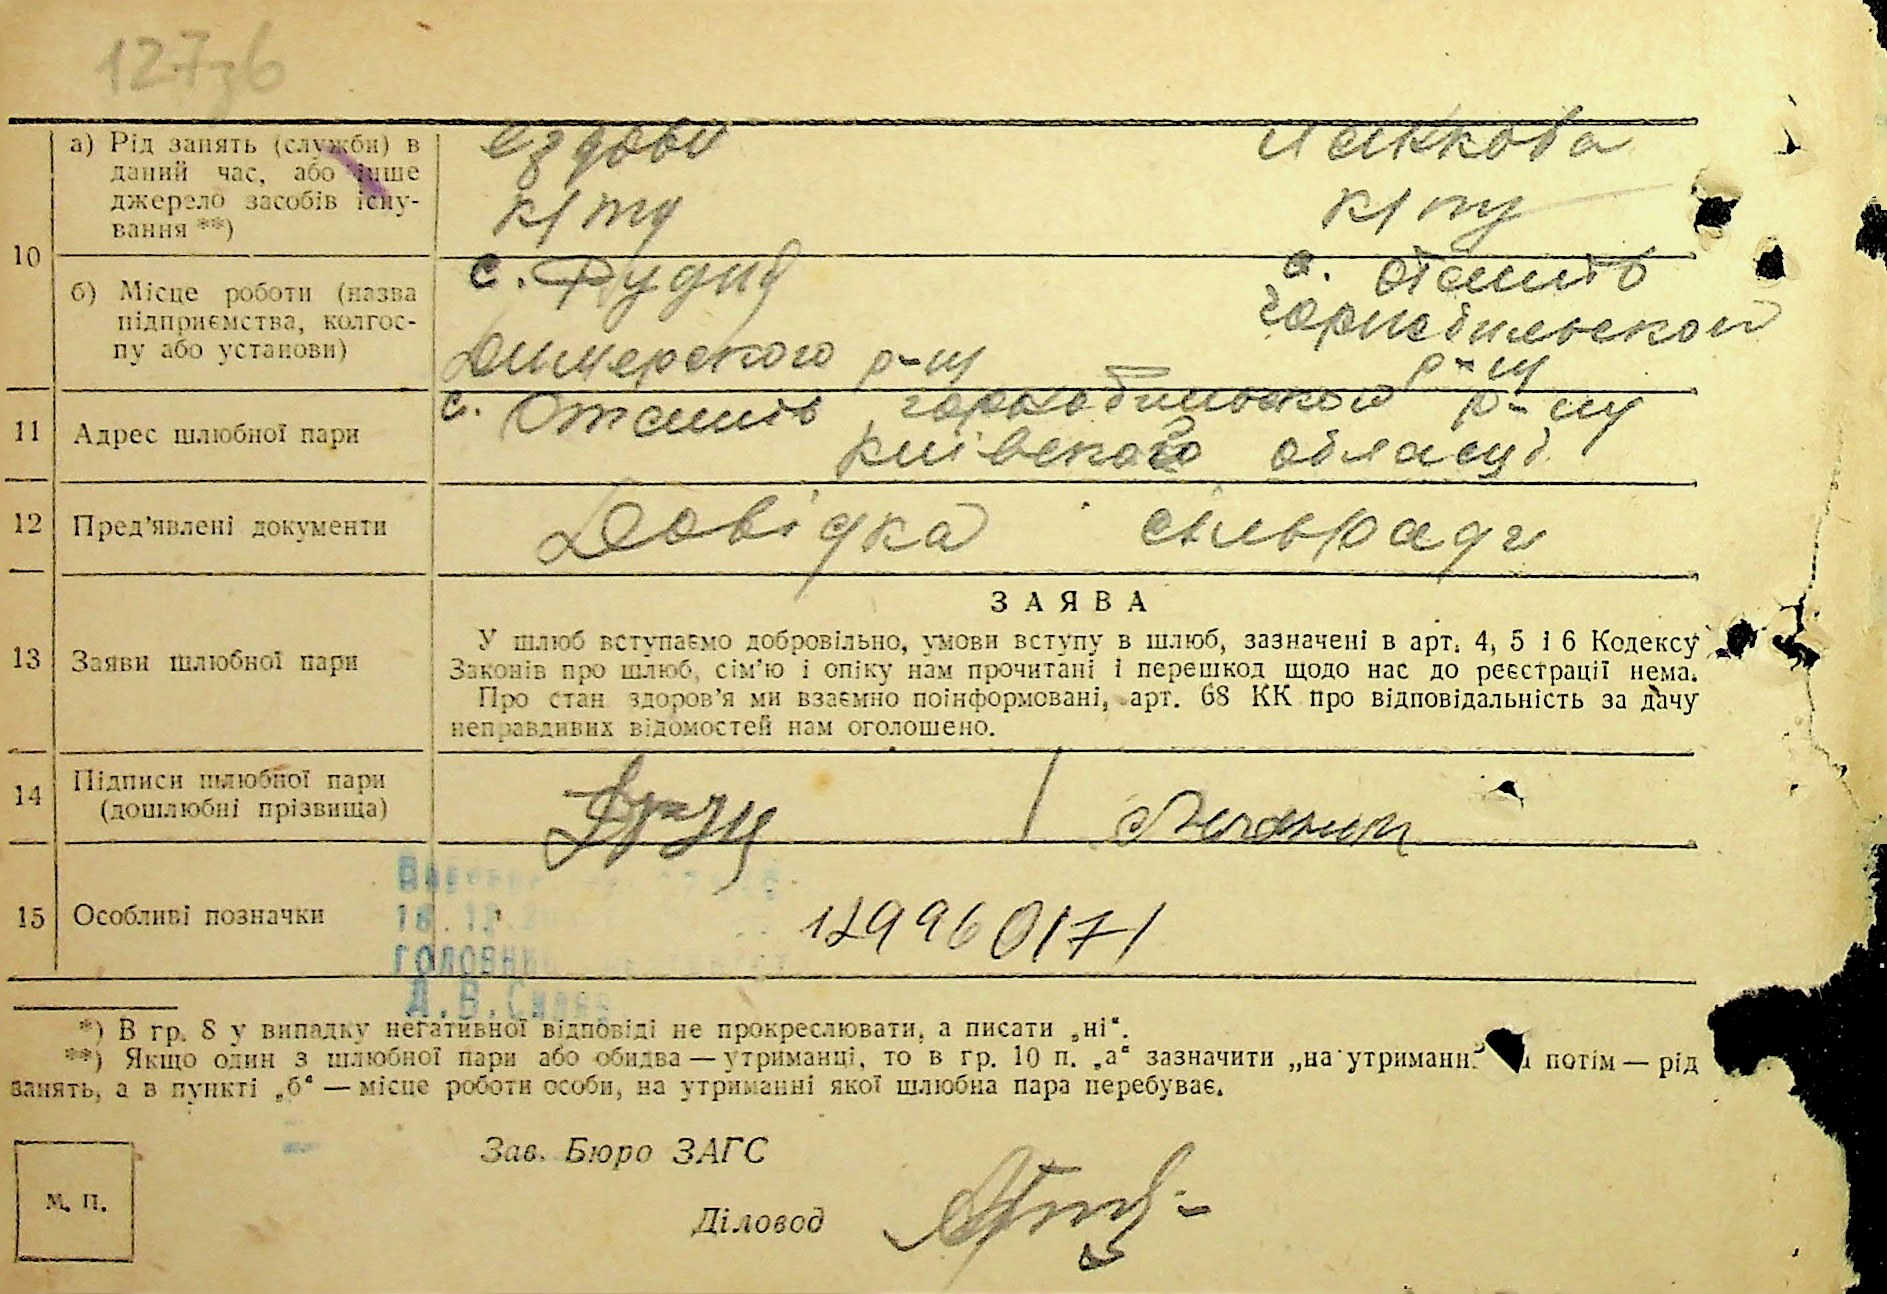 127зб
10
а) Рід занять (служби) в даний час, або інше джерело засобів існування **)
Їздови
к/ту
Лянкова
к/ту
б) Місце роботи (назва підприємства, колгоспу або установи)
с. Рудня
Димерського р-ну
с. Оташів
Чорнобильской
р-ну
11
Адрес шлюбної пари
с. Оташів Чорнобильской р-ну
Київского області
12
Пред'явлені документи
Довідка сільради
ЗАЯВА
13
Заяви шлюбної пари
У шлюб вступаємо добровільно, умови вступу в шлюб, зазначені в арт. 4, 5 і 6 Кодексу
Законів про шлюб, сім'ю і опіку нам прочитані і перешкод щодо нас до реєстрації нема.
Про стан здоров'я ми взаємно поінформовані, арт. 68 КК про відповідальність за дачу
неправдивих відомостей нам оголошено.
14
Підписи шлюбної пари
(дошлюбні прізвища)
15
Особливі позначки
129960171
*) В гр. 8 у випадку негативної відповіді не прокреслювати, а писати „ні“.
**) Якщо один з шлюбної пари або обидва — утриманці, то в гр. 10 п. „а“ зазначити „на утриманні потім — рід
занять, а в пункті „б“ — місце роботи особи, на утриманні якої шлюбна пара перебуває.
Зав. Бюро ЗАГС
М. П.
Діловод